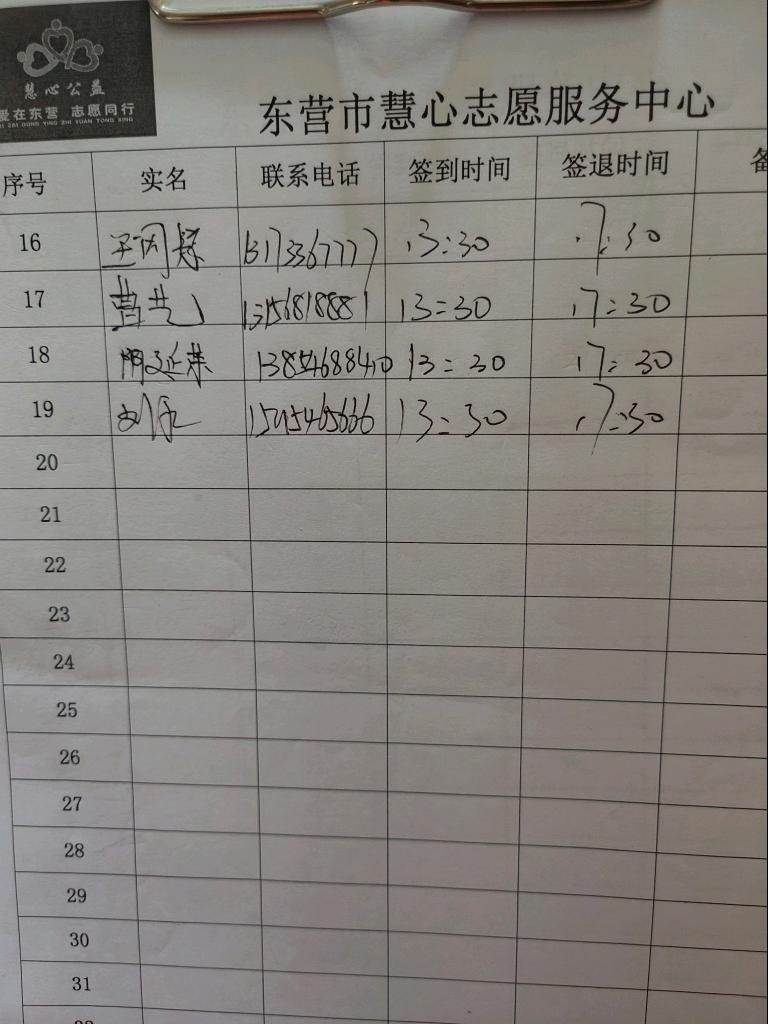 慧心公益
爱在东营 志愿同行
AI ZAI DONG YING ZHI YUAN TONG XING
东营市慧心志愿服务中心
序号 实名 联系电话 签到时间 签退时间 备
16 13173367777 13:30 17:30
17 13156818881 13:30 17:30
18 13854688410 13:30 17:30
19 刘永 13:30 17:30
20
21
22
23
24
25
26
27
28
29
30
31